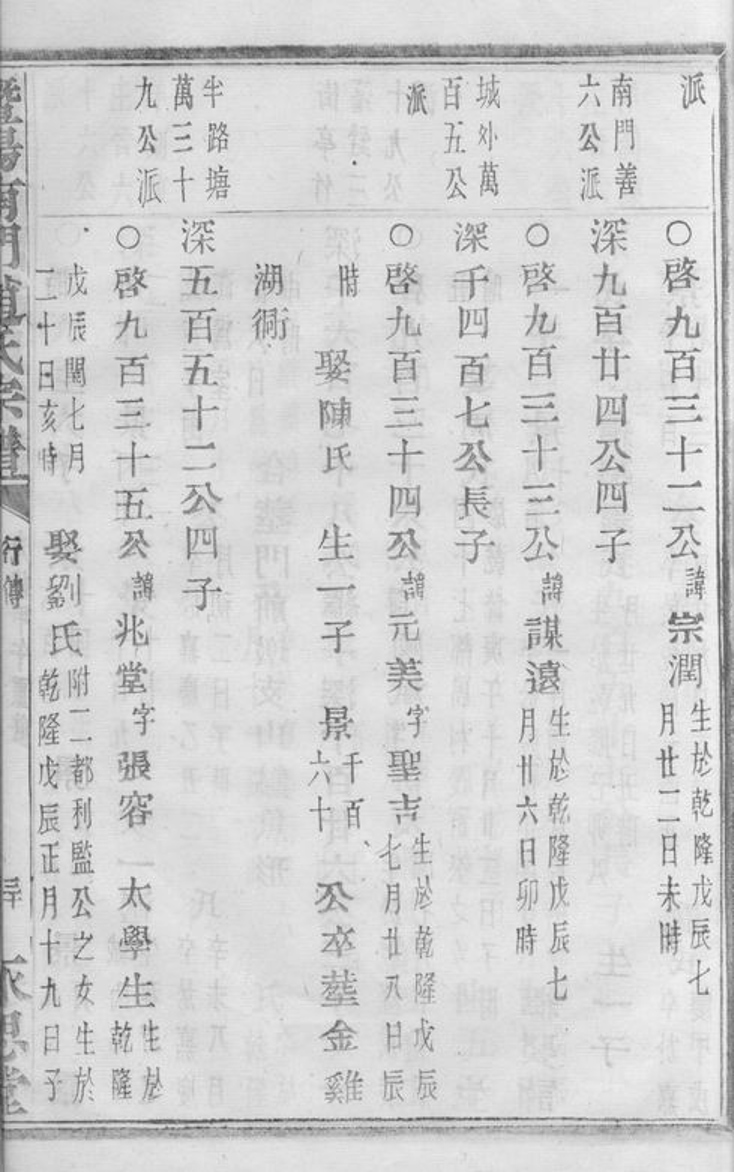 派
○啓九百三十二公諱宗潤生於乾隆戊辰七
月廿二日未時
南門善
六公派
深九百廿四公四子
○啓九百三十三公諱謀遠生於乾隆戊辰七
月廿六日卯時
城外萬
百五公
深千四百七公長子
派
○啓九百三十四公諱元美字聖吉生於乾隆戊辰
七月廿八日辰
時
娶陳氏 生一子 景千百
六十
公卒塟金雞
湖衕
半路塘
萬三十
九公派
深五百五十二公四子
○啓九百三十五公諱兆堂字張容一太學生生於
乾隆
戊辰閏七月
二十日亥時
娶劉氏附二都利監公之女生於
乾隆戊辰正月十九日子
暨陽南門趙氏宗譜
行傳
永思堂